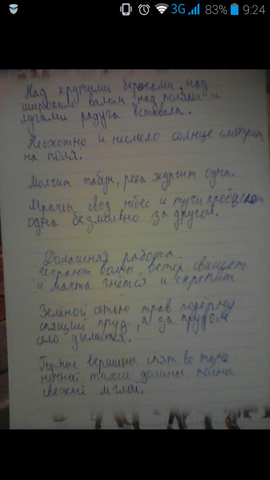 3G 83% 9:24
Над крутыми берегами, над
широким валом, над полями и
лугами радуга вставала.
Неохотно и несмело солнце смотрит
на поля.
Молчит табун, река журчит одна.
Мрачен свод небес и тучи пробегают
одна безмолвно за другой.
Домашняя работа.
Играют волны, ветер свищет
и мачта гнётся и скрепит
Зелёной сетью трав подёрнут
спящий пруд, а за прудом
село дымится.
Горные вершины спят во тьме
ночной тихие долины полны
свежей мглой.